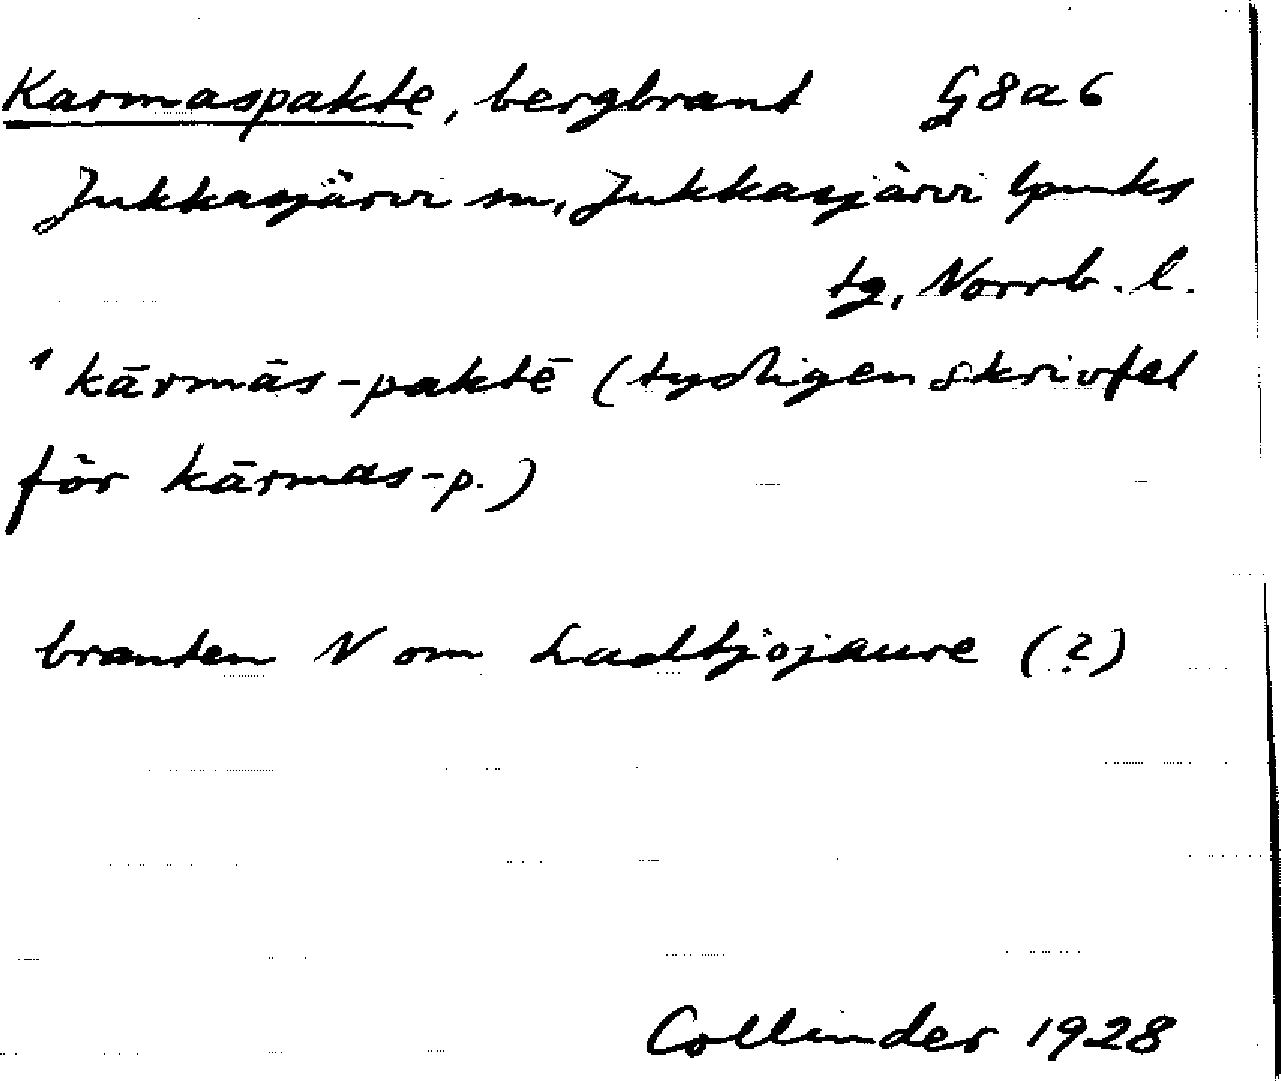 Karmaspakte, bergbrant G8a6
Jukkasjärvi sn, Jukkasjärvi lpmks
tg, Norrb. l.
ˈkārmās-paktē (tydligen skrivfel
för kārmas-p.)
branten N om Ladtjojaure (?)
Collinder 1928